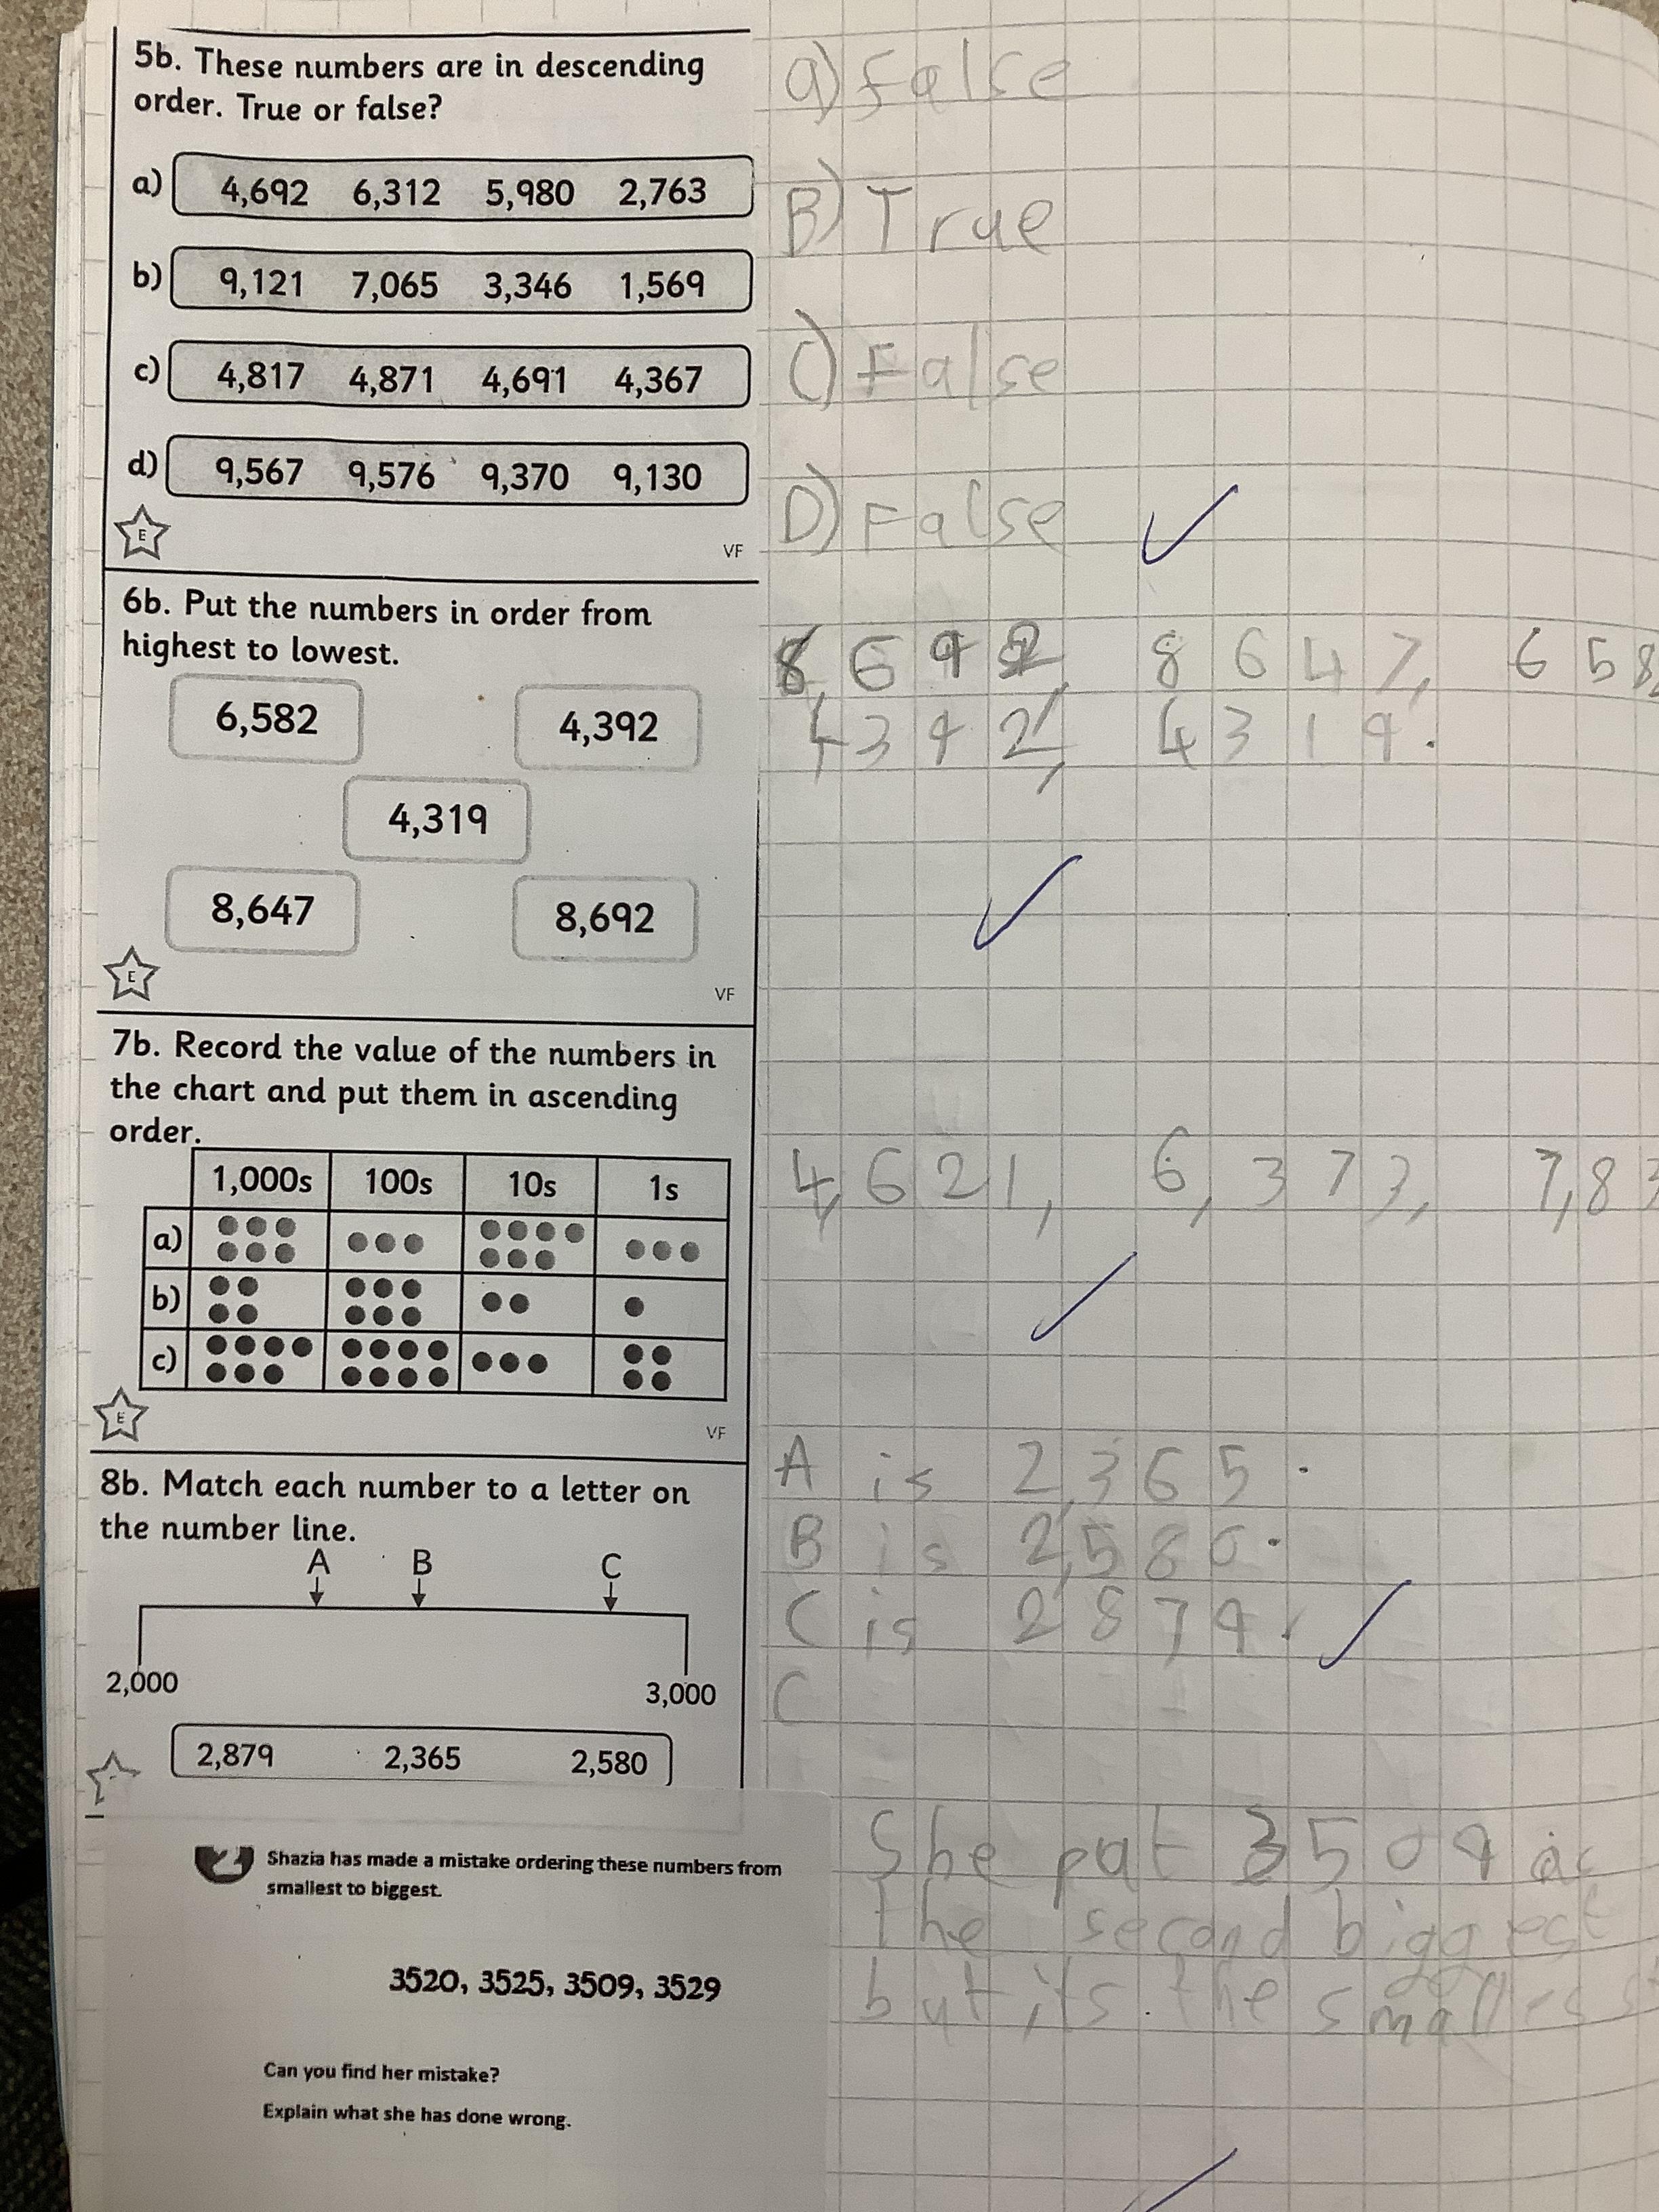 5b. These numbers are in descending
order. True or false?
a) 4,692 6,312 5,980 2,763
b) 9,121 7,065 3,346 1,569
c) 4,817 4,871 4,691 4,367
d) 9,567 9,576 9,370 9,130
E
VF
a) False
B) True
C) False
D) False
6b. Put the numbers in order from
highest to lowest.
6,582 4,392
4,319
8,647 8,692
E
VF
8,692, 8647, 658
4392, 4319.
7b. Record the value of the numbers in
the chart and put them in ascending
order.
1,000s 100s 10s 1s
a)
b)
c)
E
VF
4,621, 6,373, 7,83
8b. Match each number to a letter on
the number line.
A B C
2,000 3,000
2,879 2,365 2,580
A is 2,365.
B is 2,580.
C is 2879.
C
2 Shazia has made a mistake ordering these numbers from
smallest to biggest.
3520, 3525, 3509, 3529
Can you find her mistake?
Explain what she has done wrong.
She put 3509 as
the second biggest
but its the smallest